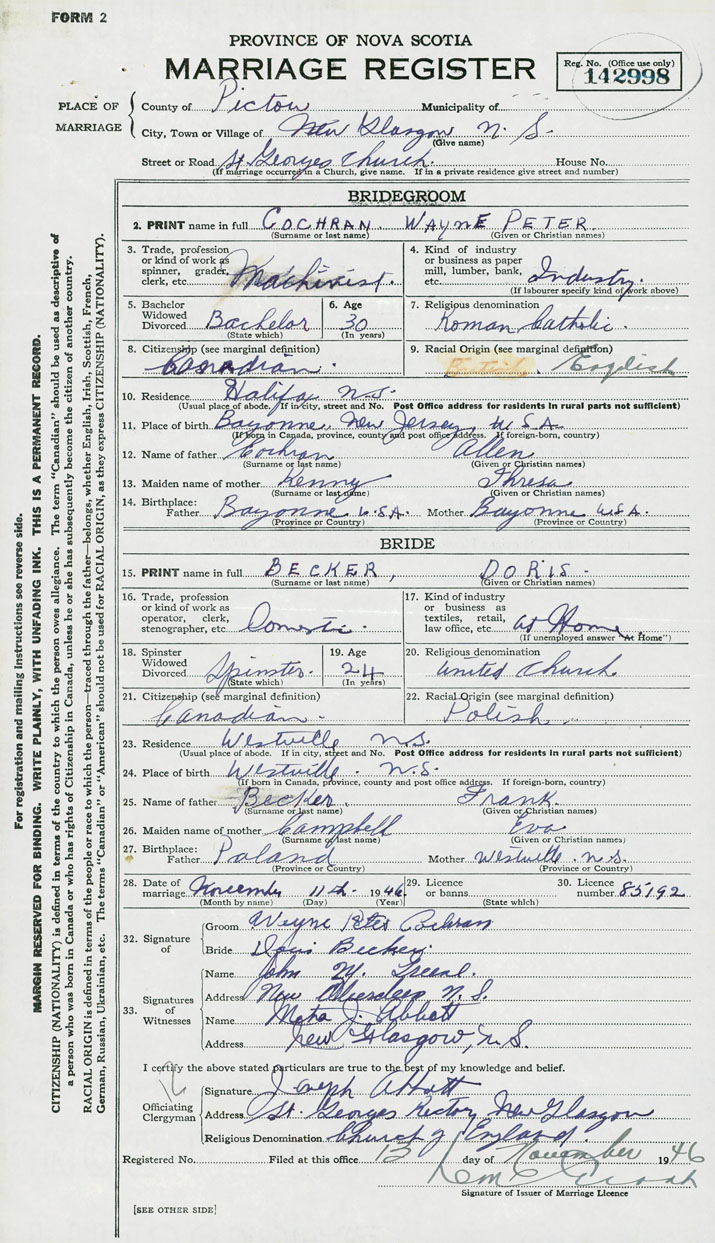 FORM 2
PROVINCE OF NOVA SCOTIA
MARRIAGE REGISTER
Reg. No. (Office use only)
142998
PLACE OF MARRIAGE
County of Pictou Municipality of
City, Town or Village of New Glasgow N. S.
(Give name)
Street or Road St. Georges Church. House No.
(If marriage occurred in a Church, give name. If in a private residence give street and number)
BRIDEGROOM
2. PRINT name in full COCHRAN WAYNE PETER
(Surname or last name) (Given or Christian names)
3. Trade, profession or kind of work as spinner, grader, clerk, etc. Machinist.
4. Kind of industry or business as paper mill, lumber, bank, etc. Industry.
(If labourer specify kind of work above)
5. Bachelor Widowed Divorced Bachelor (State which)
6. Age 30 (In years)
7. Religious denomination Roman Catholic.
8. Citizenship (see marginal definition) Canadian.
9. Racial Origin (see marginal definition) English
10. Residence Halifax N.S.
(Usual place of abode. If in city, street and No. Post Office address for residents in rural parts not sufficient)
11. Place of birth Bayonne, New Jersey, U.S.A.
(If born in Canada, province, county and post office address. If foreign-born, country)
12. Name of father Cochran Allen
(Surname or last name) (Given or Christian names)
13. Maiden name of mother Kenny Thresa
(Surname or last name) (Given or Christian names)
14. Birthplace: Father Bayonne U.S.A. Mother Bayonne U.S.A.
(Province or Country) (Province or Country)
BRIDE
15. PRINT name in full BECKER, DORIS
(Surname or last name) (Given or Christian names)
16. Trade, profession or kind of work as operator, clerk, stenographer, etc. Domestic.
17. Kind of industry or business as textiles, retail, law office, etc. at Home
(If unemployed answer "At Home")
18. Spinster Widowed Divorced Spinster. (State which)
19. Age 24 (In years)
20. Religious denomination United Church
21. Citizenship (see marginal definition) Canadian.
22. Racial Origin (see marginal definition) Polish
23. Residence Westville N.S.
(Usual place of abode. If in city, street and No. Post Office address for residents in rural parts not sufficient)
24. Place of birth Westville. N.S.
(If born in Canada, province, county and post office address. If foreign-born, country)
25. Name of father Becker. Frank.
(Surname or last name) (Given or Christian names)
26. Maiden name of mother Campbell Eva
(Surname or last name) (Given or Christian names)
27. Birthplace: Father Poland Mother Westville. N.S.
(Province or Country) (Province or Country)
28. Date of marriage November 11th 1946
(Month by name) (Day) (Year)
29. Licence or banns (State which)
30. Licence number 85192
32. Signature of
Groom Wayne Peter Cochran
Bride Doris Becker.
33. Signatures of Witnesses
Name John
Address New N.S.
Name J. Abbott
Address New Glasgow, N.S.
I certify the above stated particulars are true to the best of my knowledge and belief.
12
Officiating Clergyman
Signature Joseph Abbott
Address St. Georges Rectory New Glasgow
Religious Denomination Church of England.
Registered No. Filed at this office 13 day of November 1946
Signature of Issuer of Marriage Licence
[SEE OTHER SIDE]
For registration and mailing instructions see reverse side.
MARGIN RESERVED FOR BINDING. WRITE PLAINLY, WITH UNFADING INK. THIS IS A PERMANENT RECORD.
CITIZENSHIP (NATIONALITY) is defined in terms of the country to which the person owes allegiance. The term "Canadian" should be used as descriptive of
a person who was born in Canada or who has rights of Citizenship in Canada, unless he or she has subsequently become the citizen of another country.
RACIAL ORIGIN is defined in terms of the people or race to which the person—traced through the father—belongs, whether English, Irish, Scottish, French,
German, Russian, Ukrainian, etc. The terms "Canadian" or "American" should not be used for RACIAL ORIGIN, as they express CITIZENSHIP (NATIONALITY).